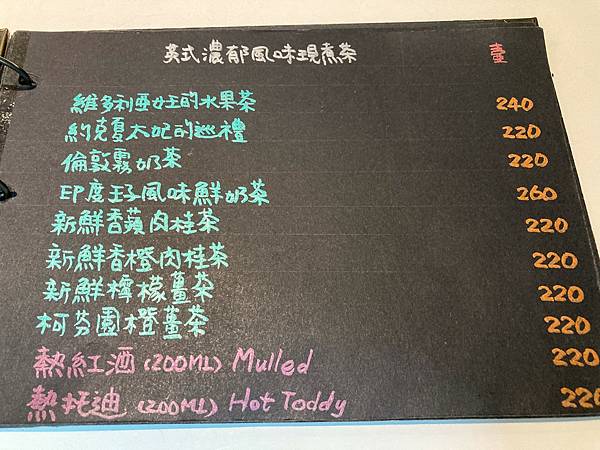 英式濃郁風味現煮茶 壺
維多利亞女王的水果茶 240
約克夏太妃的巡禮 220
倫敦霧奶茶 220
印度王子風味鮮奶茶 260
新鮮香蘋肉桂茶 220
新鮮香橙肉桂茶 220
新鮮檸檬薑茶 220
柯芬園橙薑茶 220
熱紅酒(200ML) Mulled 220
熱托迪(200ML) Hot Toddy 220